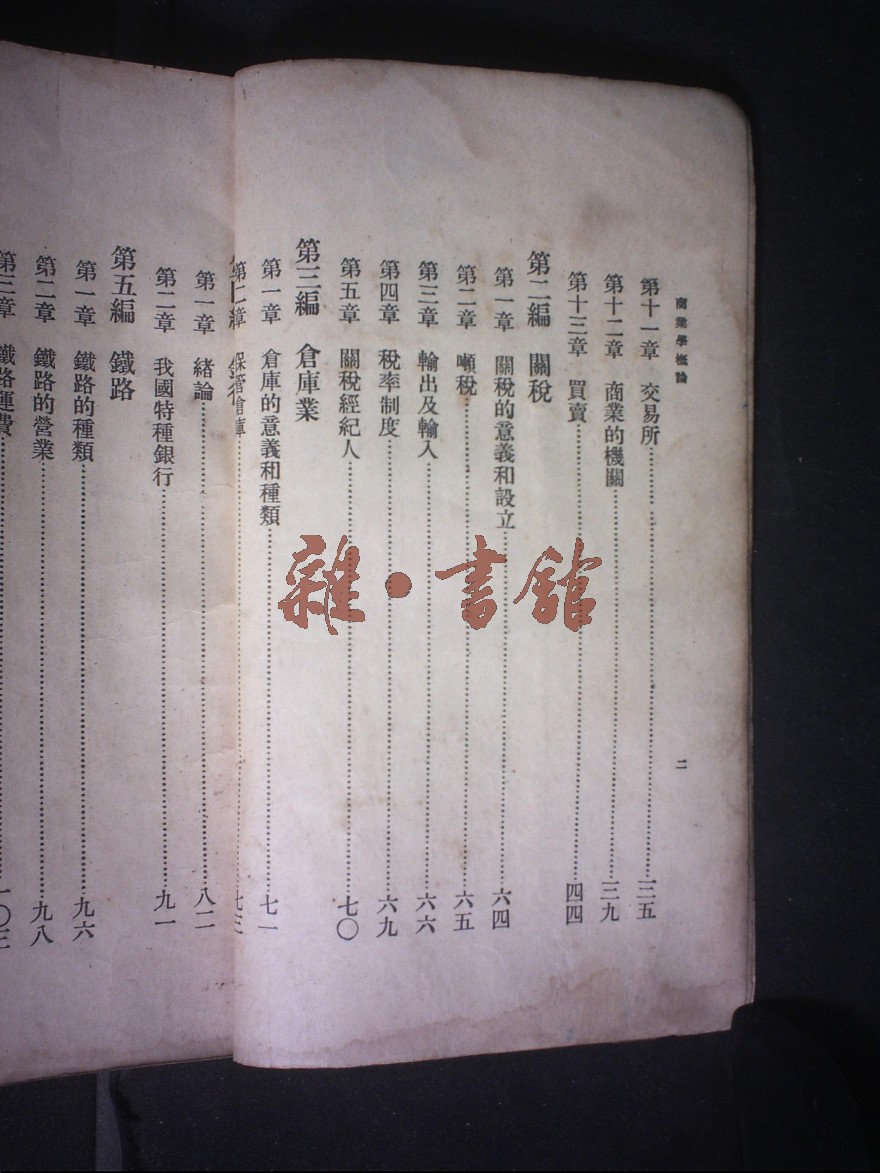 商業學概論
二
第十一章 交易所……三五
第十二章 商業的機關……三九
第十三章 買賣……四四
第二編 關稅
第一章 關稅的意義和設立……六四
第二章 噸稅……六五
第三章 輸出及輸入……六六
第四章 稅率制度……六九
第五章 關稅經紀人……七〇
第三編 倉庫業
第一章 倉庫的意義和種類……七一
第二章 保管倉庫……七三
第一章 緒論……八二
第二章 我國特種銀行……九一
第五編 鐵路
第一章 鐵路的種類……九六
第二章 鐵路的營業……九八
第三章 鐵路運費……一〇三
雜·書館